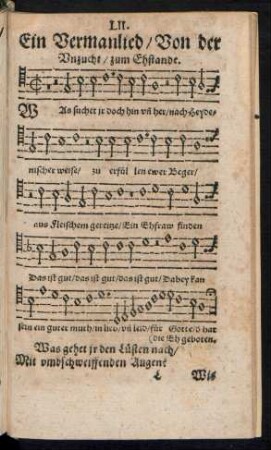 LII.
Ein Vermanlied/Von der
Vnzucht/zum Ehstande.
WAs suchet jr doch hin vñ her/nach Heyde/
nischer weise/ zu erfül len ewer Beger/
aus Fleischem gereitze/Ein Ehfraw finden
Das ist gut/das ist gut/das ist gut/Dabey kan
sein ein guter muth/in lieb/vñ leid/für Gotte/d hat
(die Eh geboten.
Was gehet jr den Lüsten nach/
Mit vmbschweiffenden Augen?
L Wis